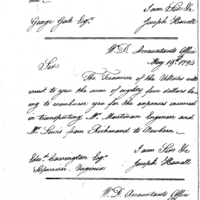 I am Sir &c
George Gale Esqr.
Joseph Howell
W.D. Accountants Office
May 19th. 1794
Sir
The Treasurer of the U States will
remit to you the sum of eighty five dollars be-
ing to reimburse you for the expenses incurred
in transporting Mr. Martinon Engineer and
Mr. Lewis from Richmond to Newbern.
I am Sir &c
Edwd. Carrington Esqr.
Joseph Howell
Supervisor Virginia
W.D. Accountants Office